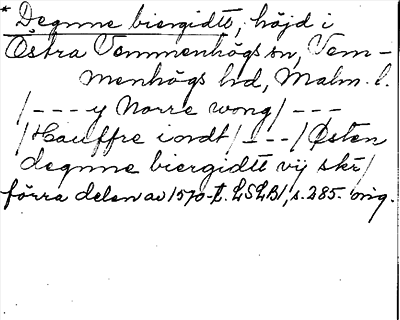 * Degnne biergidtt, höjd i
Östra Vemmenhögs sn, Vem-
menhögs hd, Malm. l.
/--- y Norre wong/ ---
/Hauffre iordt/ --- /Østen
degnne biergidtt vij ske/
förra delen av 1570-t. LSLB1, s. 285. orig.